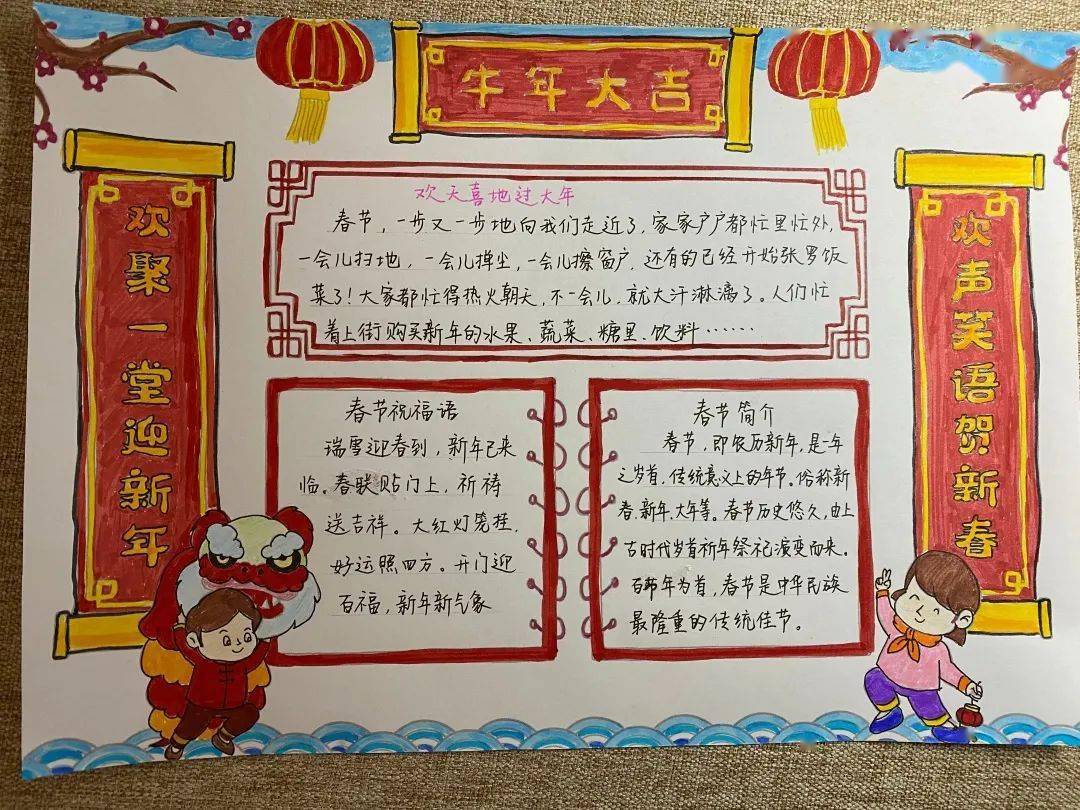 牛年大吉
欢聚一堂迎新年
欢天喜地过大年
春节，一步又一步地向我们走近了，家家户户都忙里忙外，
一会儿扫地，一会儿掸尘，一会儿擦窗户，还有的已经开始张罗饭
菜了！大家都忙得热火朝天，不一会儿，就大汗淋漓了。人们忙
着上街购买新年的水果、蔬菜、糖里、饮料……
春节祝福语
瑞雪迎春到，新年已来
临。春联贴门上，祈祷
送吉祥。大红灯笼挂，
好运照四方。开门迎
百福，新年新气象
春节简介
春节，即农历新年，是一年
之岁首，传统意义上的年节。俗称新
春、新年、大年等。春节历史悠久，由上
古时代岁首祈年祭祀演变而来。
百节年为首，春节是中华民族
最隆重的传统佳节。
欢声笑语贺新春